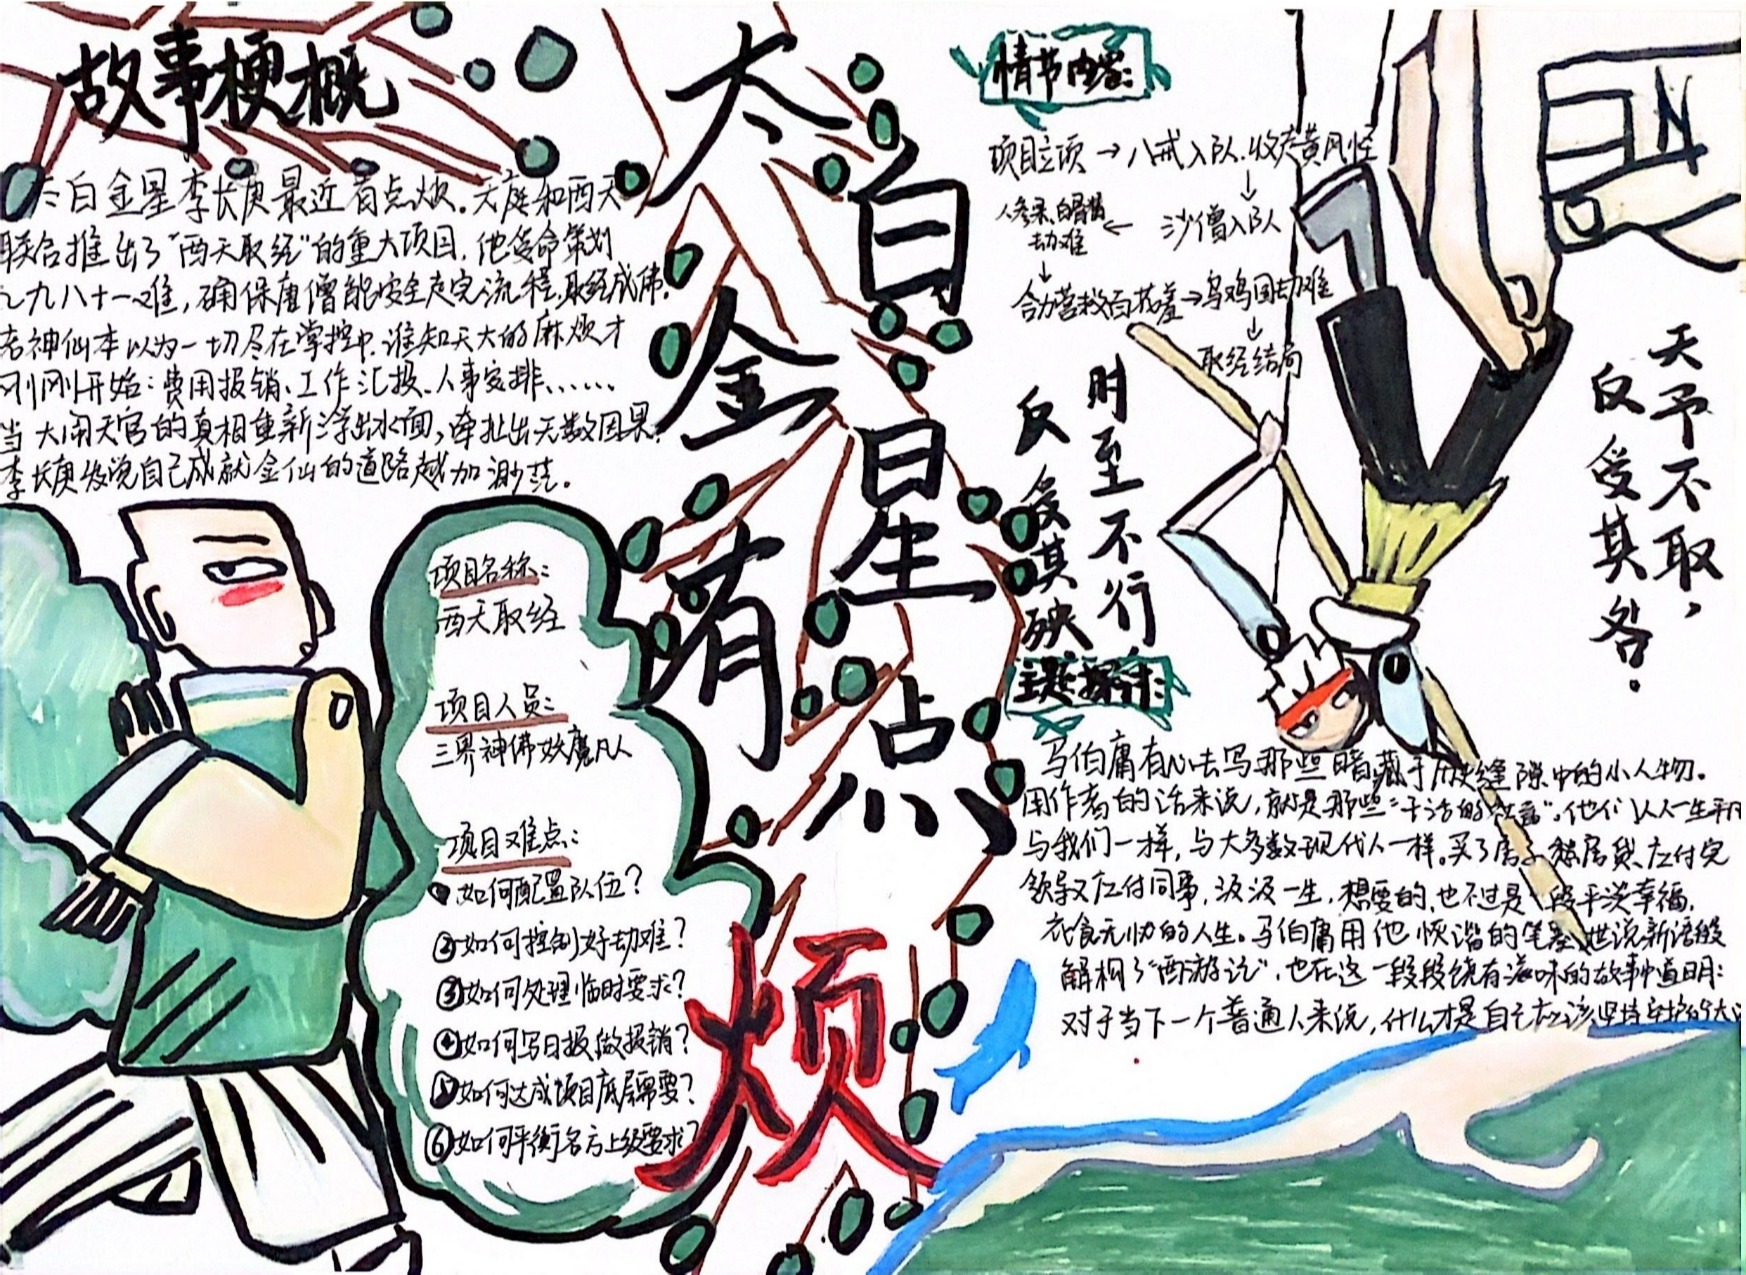 故事梗概
太白金星李长庚最近有点烦。天庭和西天
联合推出了"西天取经"的重大项目,他受命策划
九九八十一难,确保唐僧能安全走完流程,取经成佛。
老神仙本以为一切尽在掌控中,谁知天大的麻烦才
刚刚开始:费用报销、工作汇报、人事安排……
当大闹天宫的真相重新浮出水面,牵扯出无数因果,
李长庚发现自己成就金仙的道路越加渺茫。
项目名称:
西天取经
项目人员:
三界神佛妖魔凡人
项目难点:
如何配置队伍?
②如何控制好劫难?
③如何处理临时要求?
④如何写日报做报销?
⑤如何达成项目底层需要?
⑥如何平衡各方上级要求?
太白金星有点烦
情节内容:
项目立项→八戒入队,收夫黄风怪
↓
沙僧入队
←
人参果、白骨精
劫难
↓
合力营救百花羞→乌鸡国劫难
↓
取经结局
时至不行
反受其殃
天予不取,
反受其咎。
主题探讨:
马伯庸有心去写那些暗藏于历史缝隙中的小人物。
用作者的话来说,就是那些"干活的
"。他们以人生
与我们一样,与大多数现代人一样。买了房子愁房贷,应付完
领导又应付同事,汲汲一生,想要的,也不过是一段平淡幸福,
衣食无忧的人生。马伯庸用他诙谐的笔墨,世说新语般
解构了"西游记",也在这一段段饶有滋味的故事中道明:
对于当下一个普通人来说,什么才是自己应该坚持守护的大